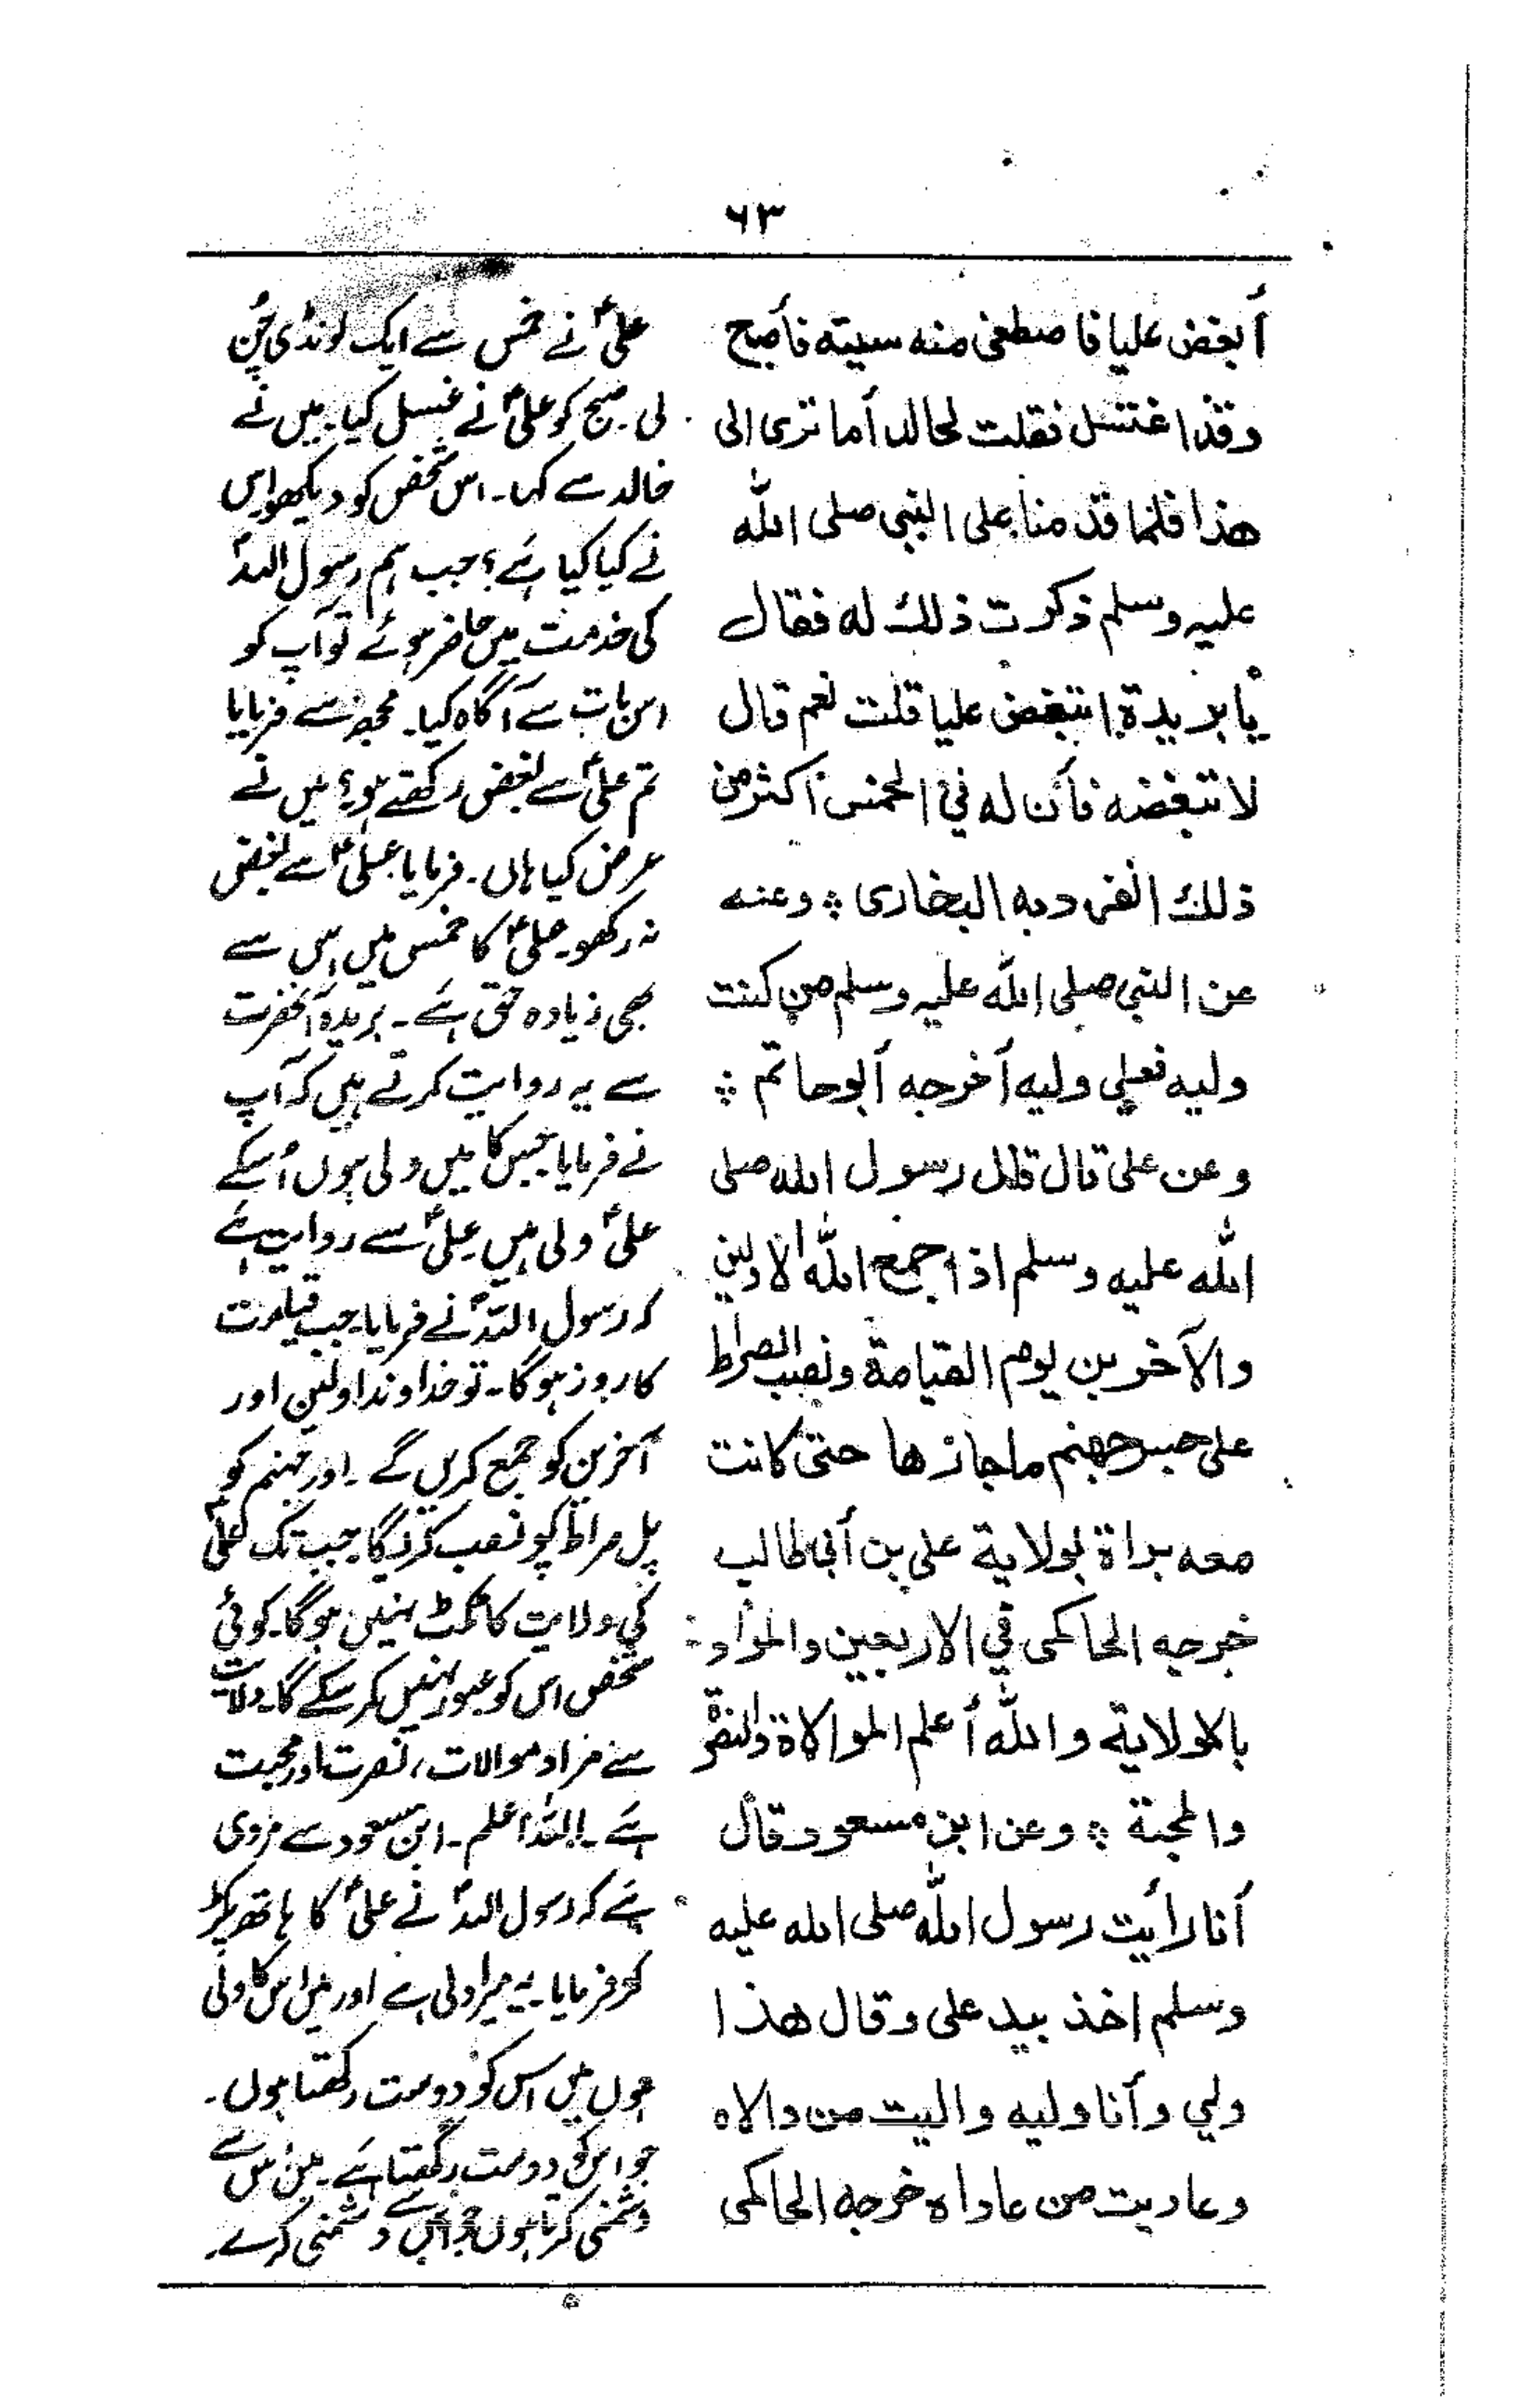 ٦٣
أبغض عليا فاصطفى منه سبيته فأصبح
وقد اغتسل فقلت لخالد أما ترى الى
هذا فلما قدمنا على النبى صلى الله
عليه وسلم ذكرت ذلك له فقال
يا بريدة اتبغض عليا قلت نعم قال
لا تبغضه فأن له في الخمس أكثر من
ذلك انفرد به البخارى ۞ وعنه
عن النبى صلى الله عليه وسلم من كنت
وليه فعلى وليه أخرجه أبو حاتم ۞
وعن على قال قال رسول الله صلى
الله عليه وسلم اذا جمع الله الاولين
والآخرين يوم القيامة ونصب الصراط
على جسر جهنم ما جازها حتى كانت
معه براة بولاية على بن أبى طالب
خرجه الحاكمى في الاربعين والمراد
بالولاية والله أعلم الموالاة والنصرة
والمحبة ۞ وعن ابن مسعود قال
أنا رأيت رسول الله صلى الله عليه
وسلم اخذ بيد على وقال هذا
ولي وأنا وليه واليت من والاه
وعاديت من عاداه خرجه الحاكمى
علیؑ نے خمس سے ایک لونڈی چُن
لی۔ صبح کو علیؑ نے غسل کیا۔ میں نے
خالد سے کہا۔ اس شخص کو دیکھو اس
نے کیا کیا ہے؟ جب ہم رسول اللہؐ
کی خدمت میں حاضر ہوئے تو آپ کو
اس بات سے آگاہ کیا۔ مجھ سے فرمایا
تم علیؑ سے بغض رکھتے ہو؟ میں نے
عرض کیا ہاں۔ فرمایا علیؑ سے بغض
نہ رکھو۔ علیؑ کا خمس میں اس سے
بھی زیادہ حق ہے۔ بریدہ آنحضرت
سے یہ روایت کرتے ہیں کہ آپ
نے فرمایا جس کا میں ولی ہوں اُسکے
علیؑ ولی ہیں علیؑ سے روایت ہے
کہ رسول اللہؐ نے فرمایا۔ جب قیامت
کا روز ہوگا۔ تو خداوند اولین اور
آخرین کو جمع کریں گے۔ اور جہنم کو
پل صراط کو نصب کردیگا۔ جب تک علیؑ
کی ولایت کا ٹکٹ نہیں ہوگا۔ کوئی
شخص اس کو عبور نہیں کر سکے گا۔ ولایت
سے مراد موالات، نصرت اور محبت
ہے۔ اللہ اعلم۔ ابن مسعود سے مروی
ہے کہ رسول اللہؐ نے علیؑ کا ہاتھ پکڑ
کر فرمایا۔ یہ میرا ولی ہے اور میں اس کا ولی
ہوں میں اس کو دوست رکھتا ہوں۔
جو اس کو دوست رکھتا ہے۔ میں اس سے
دشمنی کرتا ہوں جو اس سے دشمنی کرے۔